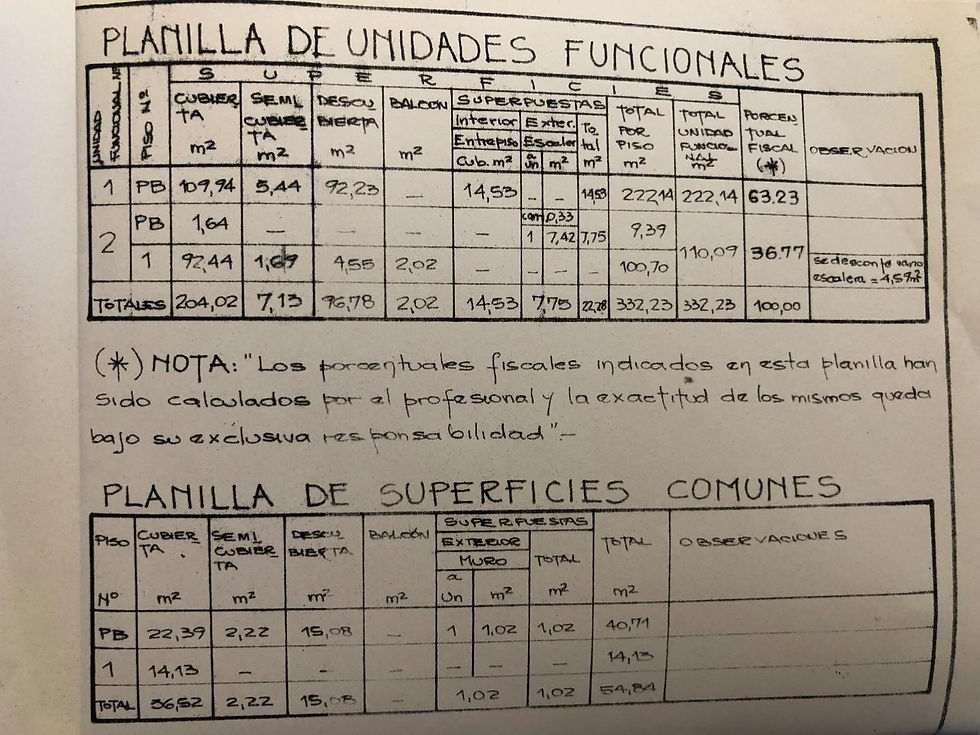 PLANILLA DE UNIDADES FUNCIONALES
UNIDAD FUNCIONAL Nº
PISO Nº
SUPERFICIES
CUBIERTA m2
SEMI CUBIERTA m2
DESCUBIERTA m2
BALCON m2
SUPERPUESTAS
Interior Exter. Total m2
Entrepiso Escalera
Cub. m2 a un m2
TOTAL POR PISO m2
TOTAL UNIDAD FUNCIONAL m2
PORCENTUAL FISCAL (*)
OBSERVACION
1 PB 109,94 5,44 92,23 — 14,53 — — 14,53 222,14 222,14 63.23
com 0,33
2 PB 1,64 — — — 1 7,42 7,75 9,39
110,09 36.77
1 92,44 1,69 4,55 2,02 — — — — 100,70 se desconto vano escalera = 4,59m2
TOTALES 204,02 7,13 96,78 2,02 14,53 7,75 22,28 332,23 332,23 100,00
(*) NOTA: "Los porcentuales fiscales indicados en esta planilla han
sido calculados por el profesional y la exactitud de los mismos queda
bajo su exclusiva responsabilidad".—
PLANILLA DE SUPERFICIES COMUNES
PISO Nº
CUBIERTA. m2
SEMI CUBIERTA m2
DESCUBIERTA m2
BALCÓN m2
SUPERPUESTAS
EXTERIOR
MURO
a un m2
TOTAL m2
TOTAL m2
OBSERVACIONES
PB 22,39 2,22 15,08 — 1 1,02 1,02 40,71
1 14,13 — — — — — — 14,13
TOTAL 36,52 2,22 15,08 — 1,02 1,02 54,84